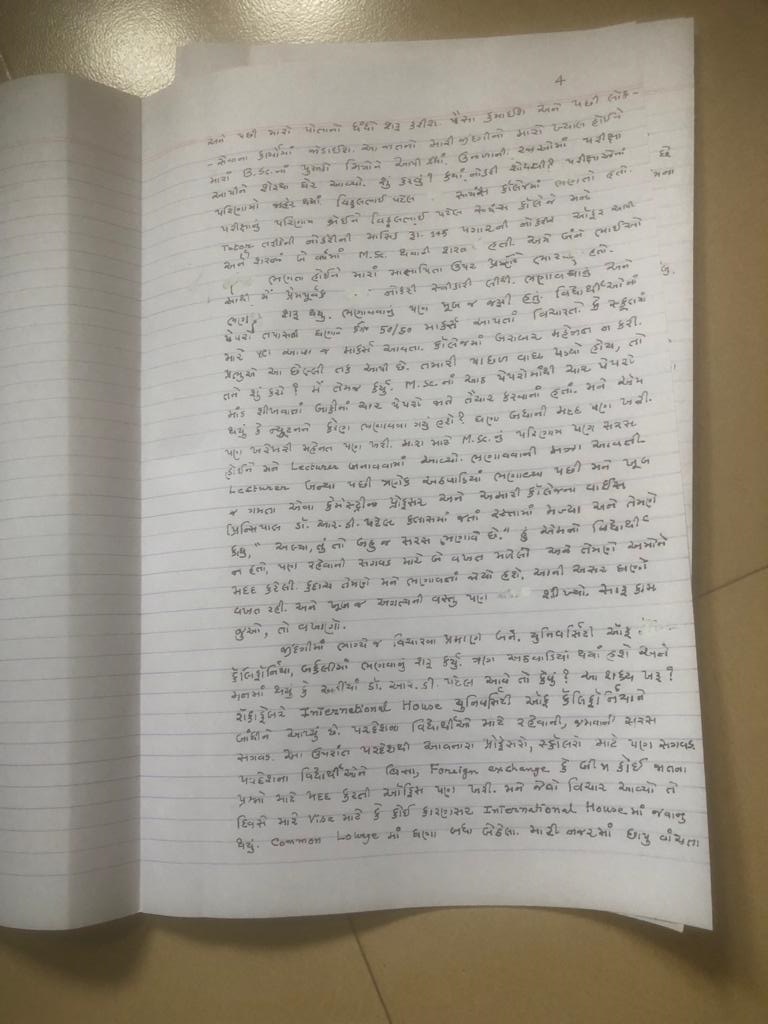 4
અને પછી મારો પોતાનો ધંધો શરૂ કરીશ. પૈસા કમાઈશ અને પછી લોક-
-સેવાના કાર્યોમાં જોડાઈશ. આ જાતનો મારી જીંદગીનો મારો ખ્યાલ હોઈને
મારાં B.Sc. નાં પુસ્તકો મિત્રોને આપી દીધાં. ઉનાળાની રજાઓમાં પરીક્ષા
આપીને શેરથા ઘેર આવ્યો. શું કરવું? ક્યાં નોકરી શોધવી? પરીક્ષાઓનાં
પરિણામો જાહેર થયાં વિઠ્ઠલભાઈ પટેલ સાયન્સ કૉલેજમાં ભણતો હતો.
પરીક્ષાનું પરિણામ જોઈને વિઠ્ઠલભાઈ પટેલ સાયન્સ કૉલેજે મને
Tutor તરીકેની નોકરીની માસિક રૂા. પગારની નોકરીની ઑફર આપી
અને શરતમાં બે વર્ષમાં M.Sc. થવાની શરત હતી. અમે બંને ભાઈઓ
ભણતા હોઈને મારાં માતાપિતા ઉપર હતો.
સાથી મેં પ્રેમપૂર્વક નોકરી સ્વીકારી લીધી. ભણાવવાનું અને
શરૂ થયું. ભણાવવાનું પણ ખૂબ જ જામી હતું. વિદ્યાર્થીઓનાં
પેપરો તપાસતાં ઘણાને 50/50 માર્ક્સ આપતાં વિચારતો કે સ્કૂલમાં
મારે પણ આવા જ માર્ક્સ આવતા. કૉલેજમાં બરાબર મહેનત ન કરી.
પ્રભુએ આ છેલ્લી તક આપી છે. તમારી પાછળ વાઘ પડ્યો હોય, તો
તમે શું કરો? મેં તેમજ કર્યું. M.Sc. નાં આઠ પેપરોમાંથી ચાર પેપરો
માંડ શીખવાતાં બાકીનાં ચાર પેપરો જાતે તૈયાર કરવાનાં હતાં. મને એમ
થયું કે ન્યૂટનને કોણ ભણાવવા ગયું હશે? ઘણા બધાની મદદ પણ ખરી.
પણ ખરેખરી મહેનત પણ ખરી. મારા માટે M.Sc. નું પરિણામ પણ સરસ
હોઈને મને Lecturer બનાવવામાં આવ્યો. ભણાવવાની મજા આવતી.
Lecturer બન્યા પછી ત્રણેક અઠવાડિયાં ભણાવ્યા પછી મને ખૂબ
જ ગમતા એવા કેમેસ્ટ્રીના પ્રોફેસર અને અમારી કૉલેજના વાઈસ
પ્રિન્સિપાલ ડૉ. આર. ડી. પટેલ ક્લાસમાં જતાં રસ્તામાં મળ્યા અને તેમણે
કહ્યું, "અલ્યા, તું તો બહુ જ સરસ ભણાવે છે." હું એમનો વિદ્યાર્થી
ન હતો, પણ રહેવાની સગવડ માટે બે વખત મળેલો અને તેમણે અમોને
મદદ કરેલી. કદાચ તેમણે મને ભણાવતાં જોયો હશે. આની અસર ઘણો
વખત રહી. અને ખૂબ જ અગત્યની વસ્તુ પણ શીખ્યો. સારૂ કામ
જુઓ, તો વખાણો.
જીંદગીમાં ભાગ્યે જ વિચારવા પ્રમાણે બને. યુનિવર્સિટી ઑફ
કૅલિફૉર્નિયા, બર્કલીમાં ભણવાનું શરૂ કર્યું. ત્રણ અઠવાડિયાં થયાં હશે અને
મનમાં થયું કે અહીંયાં ડૉ. આર. ડી. પટેલ આવે તો કેવું? આ શક્ય ખરૂં?
રૉકફેલરે International House યુનિવર્સિટી ઑફ કૅલિફોર્નિયાને
બાંધીને આપ્યું છે. પરદેશના વિદ્યાર્થીઓ માટે રહેવાની, જમવાની સરસ
સગવડ. આ ઉપરાંત પરદેશથી આવનારા પ્રોફેસરો, સ્કૉલરો માટે પણ સગવડ
પરદેશના વિદ્યાર્થીઓને વિસા, Foreign exchange કે બીજા કોઈ જાતના
પ્રશ્નો માટે મદદ કરતી ઑફિસ પણ ખરી. મને જેવો વિચાર આવ્યો તે
દિવસે મારે Visa માટે કે કોઈ કારણસર International House માં જવાનું
થયું. Common Lounge માં ઘણા બધા બેઠેલા. મારી નજરમાં છાપુ વાંચતા